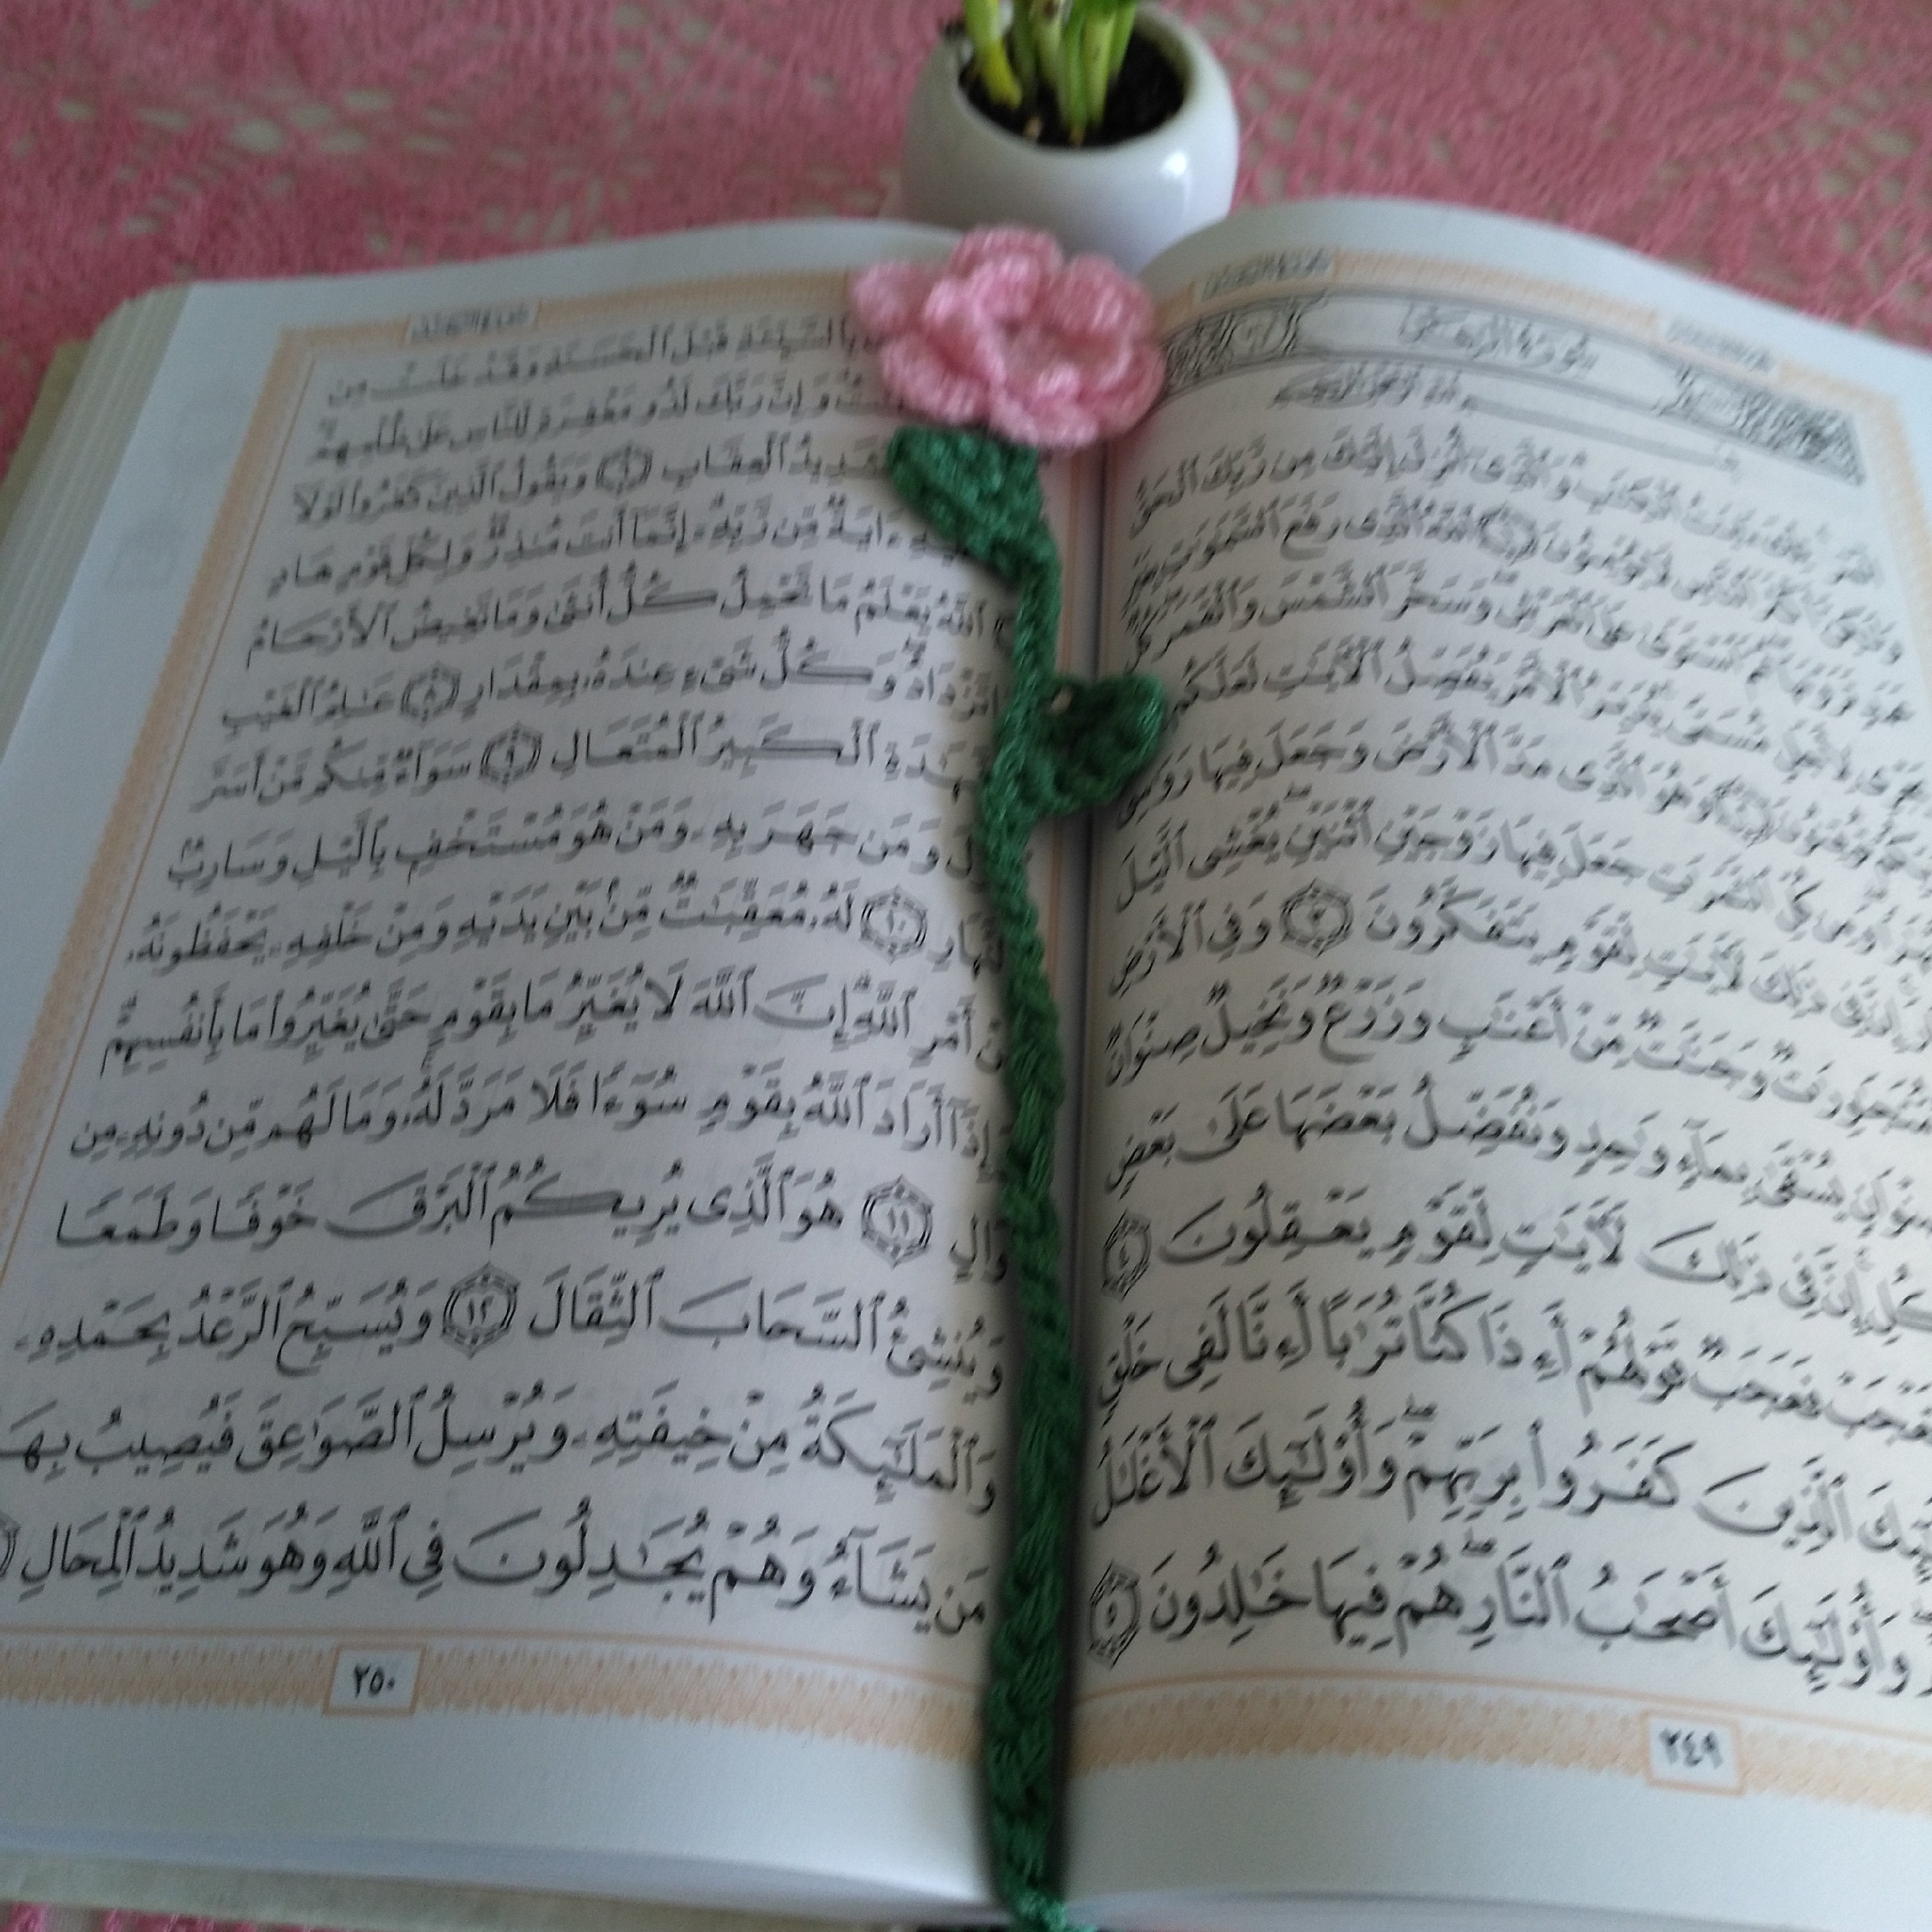 سورة الرعد
الٓمٓر تِلْكَ ءَايَٰتُ ٱلْكِتَٰبِ وَٱلَّذِىٓ أُنزِلَ إِلَيْكَ مِن رَّبِّكَ ٱلْحَقُّ
وَلَٰكِنَّ أَكْثَرَ ٱلنَّاسِ لَا يُؤْمِنُونَ ١ ٱللَّهُ ٱلَّذِى رَفَعَ ٱلسَّمَٰوَٰتِ بِغَيْرِ
عَمَدٍ تَرَوْنَهَا ثُمَّ ٱسْتَوَىٰ عَلَى ٱلْعَرْشِ وَسَخَّرَ ٱلشَّمْسَ وَٱلْقَمَرَ كُلٌّ
يَجْرِى لِأَجَلٍ مُّسَمًّى يُدَبِّرُ ٱلْأَمْرَ يُفَصِّلُ ٱلْءَايَٰتِ لَعَلَّكُم
تُوقِنُونَ ٢ وَهُوَ ٱلَّذِى مَدَّ ٱلْأَرْضَ وَجَعَلَ فِيهَا رَوَٰسِىَ
وَمِن كُلِّ ٱلثَّمَرَٰتِ جَعَلَ فِيهَا زَوْجَيْنِ ٱثْنَيْنِ يُغْشِى ٱلَّيْلَ
إِنَّ فِى ذَٰلِكَ لَءَايَٰتٍ لِّقَوْمٍ يَتَفَكَّرُونَ ٣ وَفِى ٱلْأَرْضِ
مُّتَجَٰوِرَٰتٌ وَجَنَّٰتٌ مِّنْ أَعْنَٰبٍ وَزَرْعٌ وَنَخِيلٌ صِنْوَانٌ
صِنْوَانٍ يُسْقَىٰ بِمَآءٍ وَٰحِدٍ وَنُفَضِّلُ بَعْضَهَا عَلَىٰ بَعْضٍ
ٱلْأُكُلِ إِنَّ فِى ذَٰلِكَ لَءَايَٰتٍ لِّقَوْمٍ يَعْقِلُونَ ٤
تَعْجَبْ فَعَجَبٌ قَوْلُهُمْ أَءِذَا كُنَّا تُرَٰبًا أَءِنَّا لَفِى خَلْقٍ
ٱلَّذِينَ كَفَرُوا۟ بِرَبِّهِمْ وَأُو۟لَٰٓئِكَ ٱلْأَغْلَٰلُ
وَأُو۟لَٰٓئِكَ أَصْحَٰبُ ٱلنَّارِ هُمْ فِيهَا خَٰلِدُونَ ٥
٢٤٩
بِٱلسَّيِّئَةِ قَبْلَ ٱلْحَسَنَةِ وَقَدْ خَلَتْ مِن
وَإِنَّ رَبَّكَ لَذُو مَغْفِرَةٍ لِّلنَّاسِ عَلَىٰ ظُلْمِهِمْ
ٱلْعِقَابِ ٦ وَيَقُولُ ٱلَّذِينَ كَفَرُوا۟ لَوْلَآ
ءَايَةٌ مِّن رَّبِّهِۦٓ إِنَّمَآ أَنتَ مُنذِرٌ وَلِكُلِّ قَوْمٍ هَادٍ
ٱللَّهُ يَعْلَمُ مَا تَحْمِلُ كُلُّ أُنثَىٰ وَمَا تَغِيضُ ٱلْأَرْحَامُ
تَزْدَادُ وَكُلُّ شَىْءٍ عِندَهُۥ بِمِقْدَارٍ ٨ عَٰلِمُ ٱلْغَيْبِ
ٱلْكَبِيرُ ٱلْمُتَعَالِ ٩ سَوَآءٌ مِّنكُم مَّنْ أَسَرَّ
وَمَن جَهَرَ بِهِۦ وَمَنْ هُوَ مُسْتَخْفٍۭ بِٱلَّيْلِ وَسَارِبٌۢ
١٠ لَهُۥ مُعَقِّبَٰتٌ مِّنۢ بَيْنِ يَدَيْهِ وَمِنْ خَلْفِهِۦ يَحْفَظُونَهُۥ
أَمْرِ ٱللَّهِ إِنَّ ٱللَّهَ لَا يُغَيِّرُ مَا بِقَوْمٍ حَتَّىٰ يُغَيِّرُوا۟ مَا بِأَنفُسِهِمْ
إِذَآ أَرَادَ ٱللَّهُ بِقَوْمٍ سُوٓءًا فَلَا مَرَدَّ لَهُۥ وَمَا لَهُم مِّن دُونِهِۦ مِن
وَالٍ ١١ هُوَ ٱلَّذِى يُرِيكُمُ ٱلْبَرْقَ خَوْفًا وَطَمَعًا
وَيُنشِئُ ٱلسَّحَابَ ٱلثِّقَالَ ١٢ وَيُسَبِّحُ ٱلرَّعْدُ بِحَمْدِهِۦ
وَٱلْمَلَٰٓئِكَةُ مِنْ خِيفَتِهِۦ وَيُرْسِلُ ٱلصَّوَٰعِقَ فَيُصِيبُ بِهَا
مَن يَشَآءُ وَهُمْ يُجَٰدِلُونَ فِى ٱللَّهِ وَهُوَ شَدِيدُ ٱلْمِحَالِ
٢٥٠